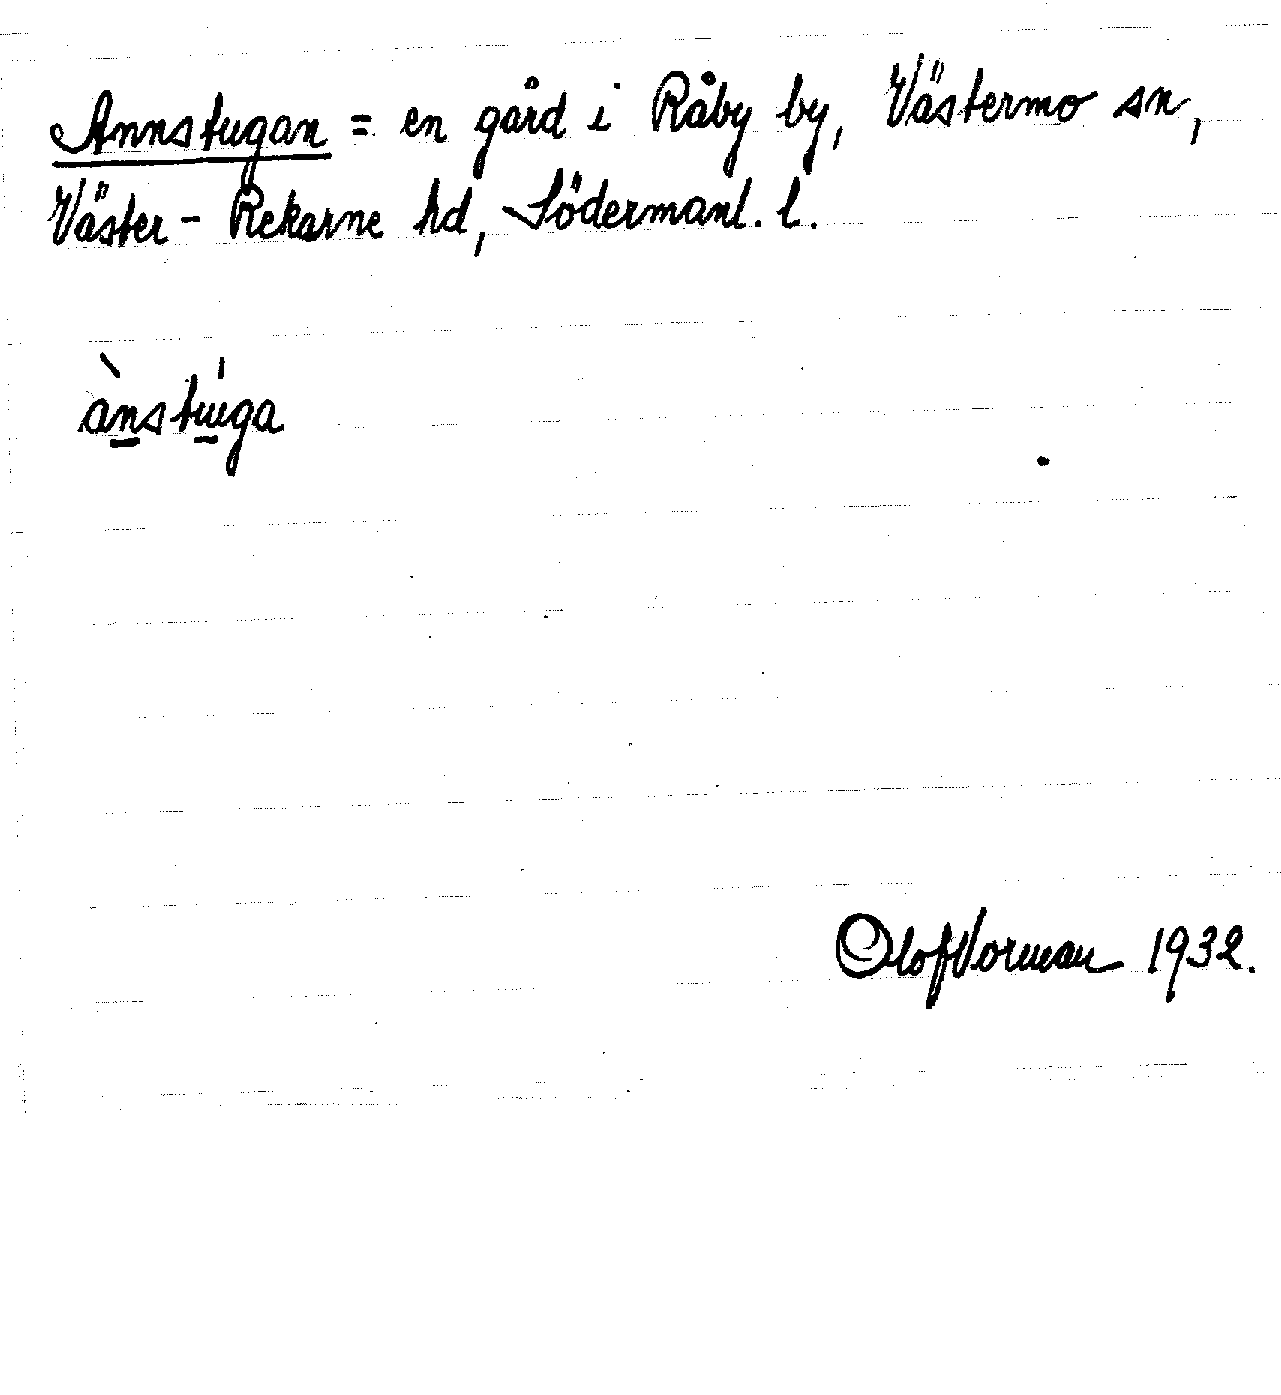 Annstugan = en gård i Råby by, Västermo sn,
Väster-Rekarne hd, Södermanl. l.
ànstúga
Olof Vorman 1932.